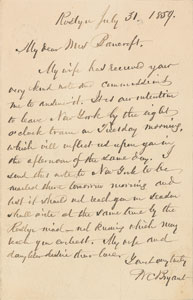 Roslyn July 31, 1859.
My dear Mrs Bancroft.
My wife has received your
very kind note and commissions
me to answer it. It is our intention
to leave New York by the eight
o'clock train on Tuesday morning,
which will inflict us upon you in
the afternoon of the same day. I
send this note to New York to be
mailed there tomorrow morning and
lest it should not reach you in season
shall write at the same time by the
Roslyn mail - not knowing which may
reach you earliest. My wife and
daughter desire their love.
I am truly
W C Bryant